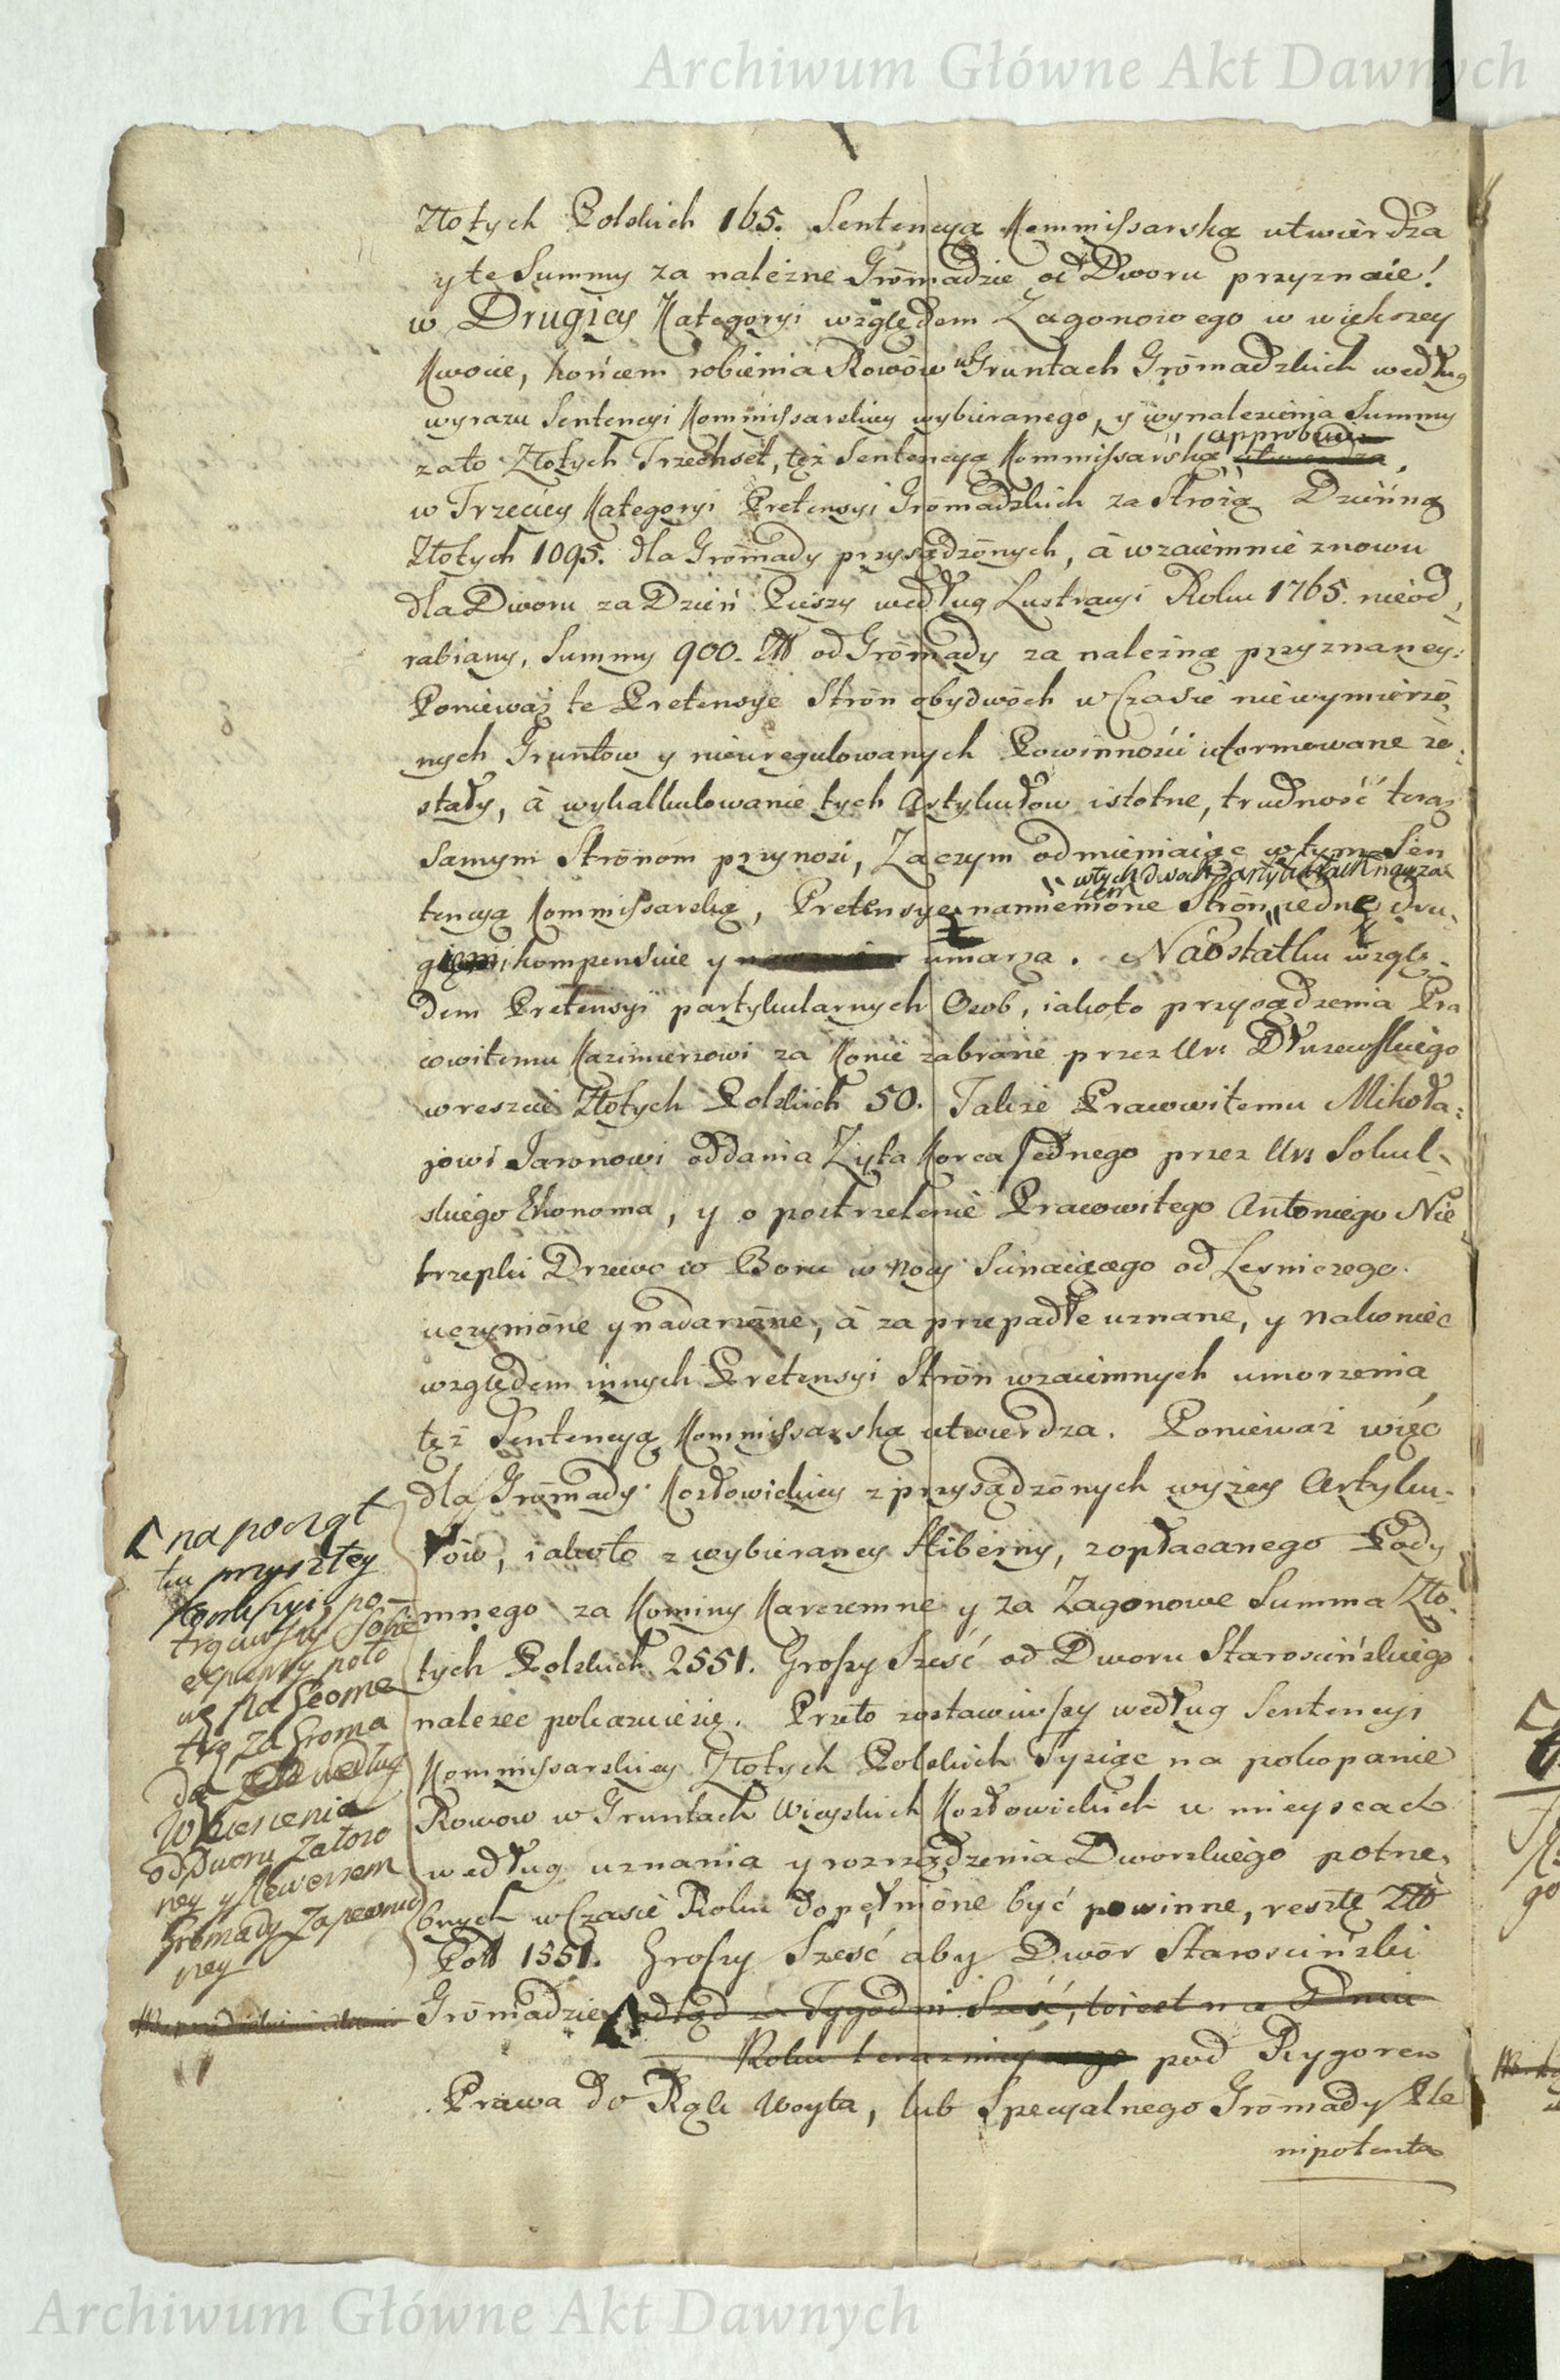 Archiwum Główne Akt Dawnych
Złotych Polskich 165. Sentencyą Kommissarską utwierdza
y te Summy za należne Gromadzie od Dworu przyznaie!
w Drugiey Kategoryi względem Zagonowego w większey
Kwocie, końcem robienia Rowów w Gruntach Gromadzkich według
wyrazu Sentencyi Kommissarskiey wybieranego, y wynalezienia Summy
approbuie
zato Złotych Trzechset, też Sentencyą Kommissarską utwierdza,
w Trzeciey Kategoryi Pretensyi Gromadzkich za Stróżą Dzienną
Złotych 1095. dla Gromady przysądzonych, à wzaiemnie znowu
dla Dworu za Dzień Pieszy według Lustracyi Roku 1765. nieod,
rabiany, Summy 900. Złł od Gromady za należną przyznaney:
Ponieważ te Pretensye Strón obydwóch w Czasie niewymierzo,
nych Gruntow y nieuregulowanych Powinności uformowane zo,
stały, à wykalkulowanie tych Artykułow istotne, trudność teraz
samym Stronom przynosi, Zaczym odmieniaiąc w tym Sen
w tych dwóch partykułach nayza
tencyą Kommissarską, Pretensye namienione Strón iedne dru,
giemi kompensuie y umarza. Naostatku wzglę,
dem Pretensyi partykularnych Osob, iakoto przysądzenia Pra
cowitemu Kazimierzowi za Konie zabrane przez Ur. Dłużewskiego
w reszcie Złotych Polskich 50. Także Pracowitemu Mikoła:
jowi Jaronowi oddania Żyta Korca Jednego przez Ur. Sokul,
skiego Ekonoma, y o postrzelenie Pracowitego Antoniego Nie
trzepki Drzewo w Boru w Nocy Scinaiącego od Lesniczego.
uczynione y nadarzone, à za przepadłe uznane, y nakoniec
względem innych Pretensyi Strón wzaiemnych umorzenia
też Sentencyą Kommissarską utwierdza. Ponieważ więc
dla Gromady Kozłowickiey z przysądzonych wyżey Artyku,
łów, iakoto z wybieraney Hiberny, zopłacanego Pody
mnego za Kominy Karczemne y za Zagonowe Summa Zło,
tych Polskich 2551. Groszy Sześć od Dworu Starościńskiego
należeć pokazuie się. Przeto zostawiwszy według Sentencyi
Kommissarskiey Złotych Polskich Tysiąc na pokopanie
Rowow w Gruntach Wieyskich Kozłowickich w mieyscach
według uznania y rozrządzenia Dworskiego potrze,
bnych w Czasie Roku dopełnione być powinne, resztę Złł
Poll 1551. Groszy Sześć aby Dwór Starosciński
Gromadzie odtąd za Tygodni Sześć, to iest na Dniu
Roku teraznieyszego pod Rygorem
Prawa do Rąk Woyta, lub Specyalnego Gromady Ple
nipotenta
na począt
ku przyszłey
Komissyi, po
trąciwszy Sobie
expensy poło
wę na Geome
trę za Groma
dę według
Wniesienia
od Dworu załozo
ney y Rewersem
Gromady Zapewnio
ney
Archiwum Główne Akt Dawnych